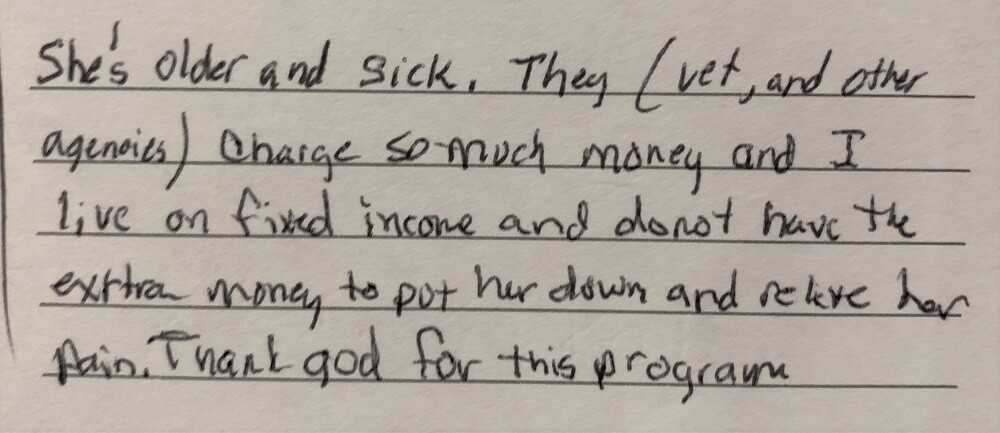 She's older and sick. They (vet, and other
agencies) charge so much money and I
live on fixed income and do not have the
extra money to put her down and releve her
pain. Thank god for this program